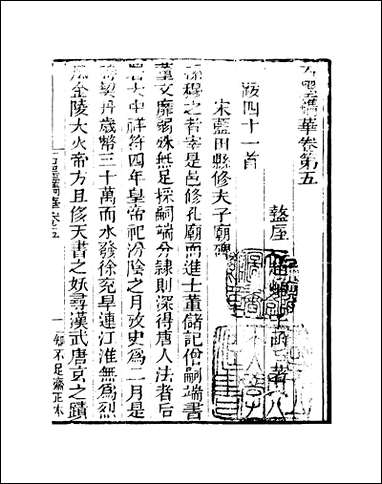 石墨鐫華卷第五
盩厔
跋四十一首
宋藍田縣修夫子廟碑
孫穆之者宰是邑修孔廟而進士董儲記僧嗣端書
董文靡弱殊無足採嗣端分隷則深得唐人法者后
署大中祥符四年皇帝祀汾陰之月攷史爲二月是
時契丹歲幣三十萬而水發徐兖旱連江淮無爲烈
風金陵大火帝方且侈天書之妖尋漢武唐玄之蹟
石墨鐫華 卷五
一
知不足齋正本